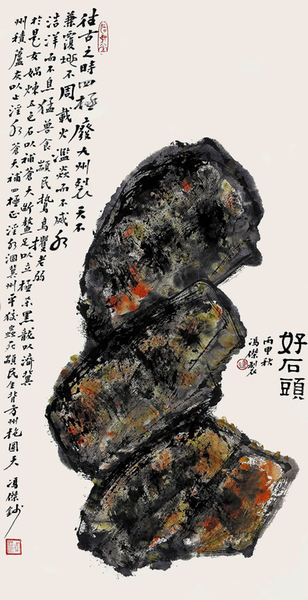 好石頭
丙申秋
馮傑製
往古之時四極廢九州裂天不
兼覆地不周載火濫焱而不滅水
浩洋而不息猛獸食顓民鷙鳥攫老弱
於是女媧煉五色石以補蒼天斷鰲足以立極殺黑龍以濟冀
州積蘆灰以止淫水蒼天補四極正淫水涸冀州平狡蟲死顓民生背方州抱圓天 馮傑鈔